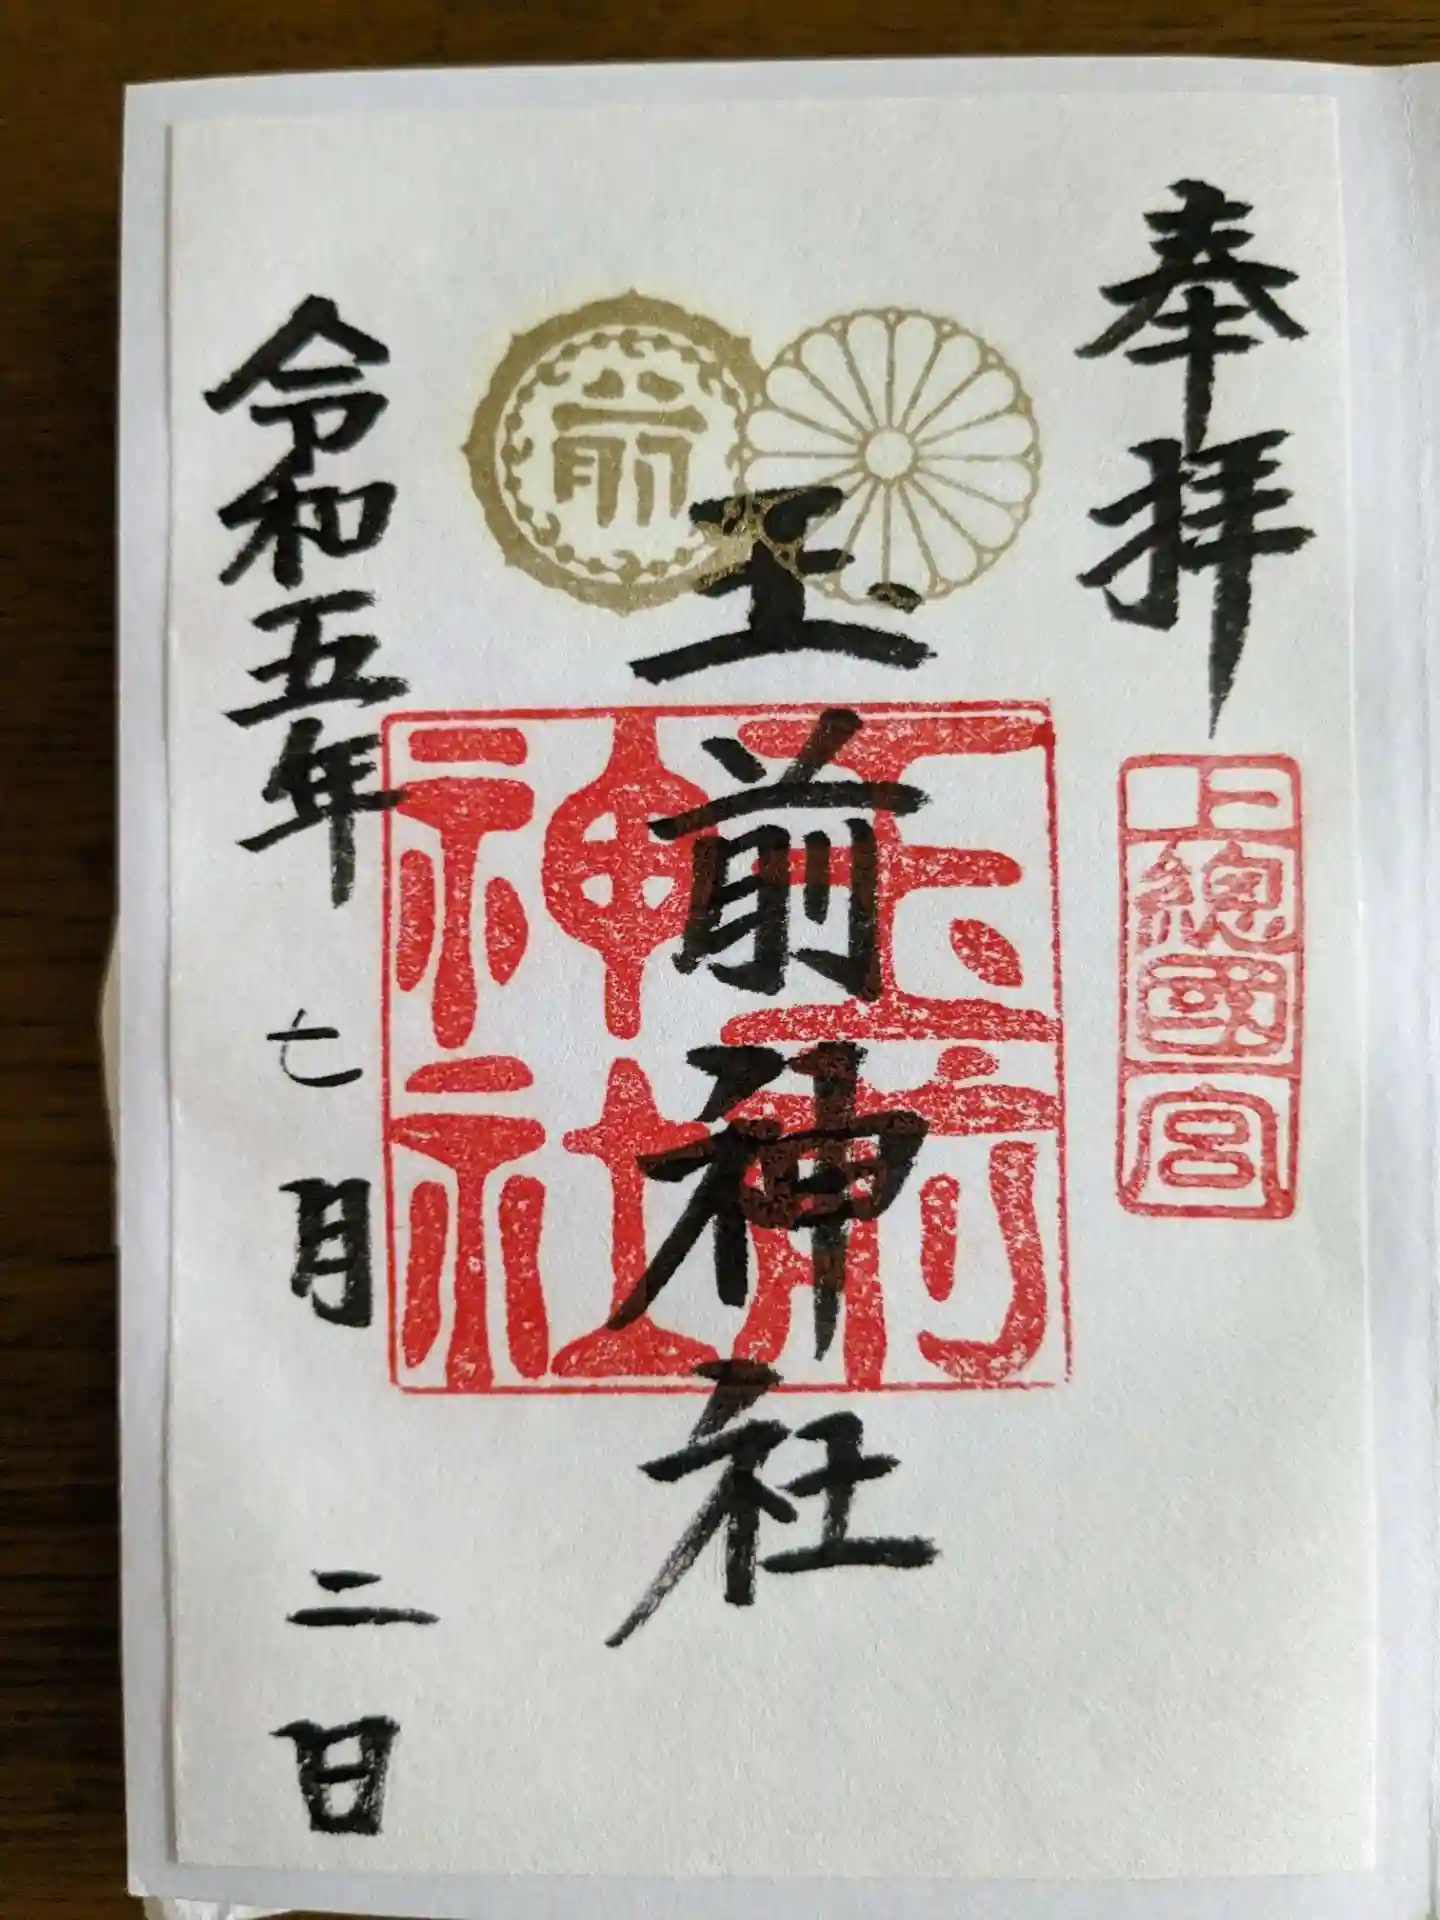 奉拝
上總國一宮
前
玉前神社
玉前神社
令和五年七月二日